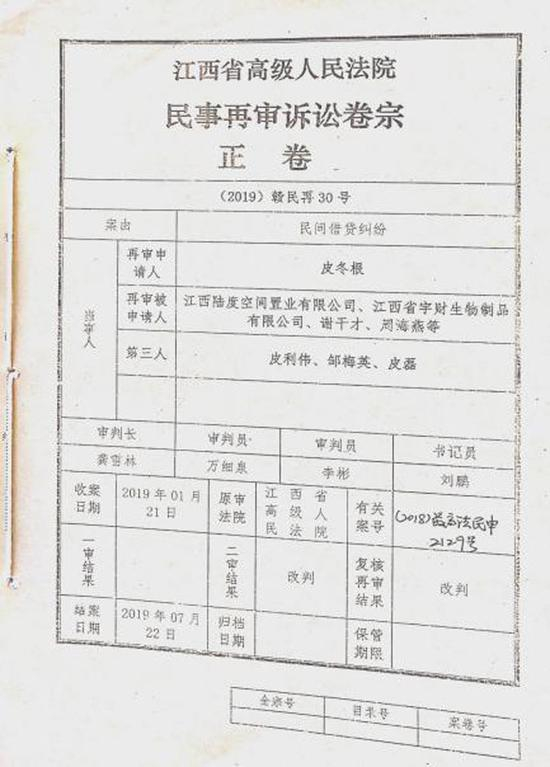 江西省高级人民法院
民事再审诉讼卷宗
正 卷
（2019）赣民再30号
案由 民间借贷纠纷
当事人
再审申请人 皮冬根
再审被申请人 江西陆度空间置业有限公司、江西省宇财生物制品
有限公司、谢干才、周海燕等
第三人 皮利伟、邹梅英、皮磊
审判长 审判员 审判员 书记员
龚雪林 万细泉 李彬 刘鹏
收案日期 2019年01月21日 原审法院 江西省高级人民法院 有关案号 (2018)最高法民申2129号
一审结果 二审结果 改判 复核再审结果 改判
结案日期 2019年07月22日 归档日期 保管期限
全宗号 目录号 案卷号